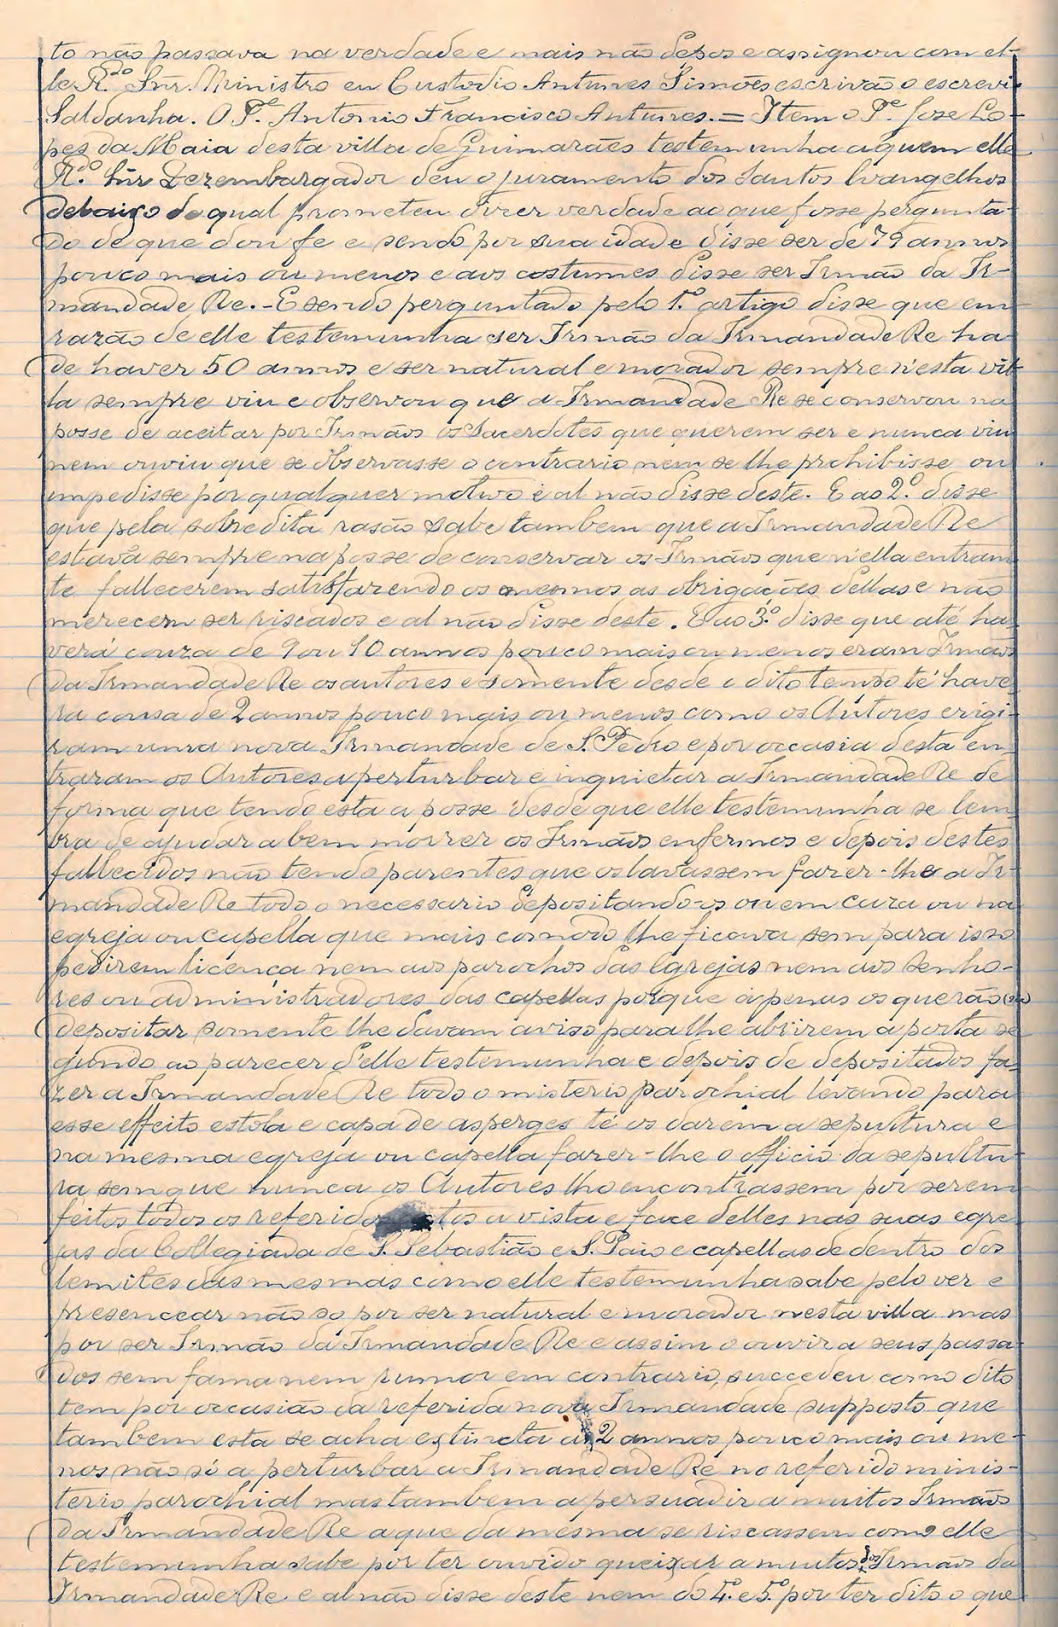 to não passava na verdade e mais não depos e assignou com el-
le R.do Snr. Ministro eu Custodio Antunes Simões escrivão o escrevi.
Saldanha. O P.e Antonio Francisco Antunes. = Item o P.e Jose Lo-
pes da Maia desta villa de Guimarães testemunha a quem elle
R.do Snr Dezembargador deu o juramento dos Santos Evangelhos
debaixo do qual prometeu dizer verdade ao que fosse pergunta-
do de que dou fe e sendo por sua idade disse ser de 79 annos
pouco mais ou menos e aos costumes disse ser Irmão da Ir-
mandade Re. - E sendo perguntado pelo 1.º artigo disse que em
razão de elle testemunha ser Irmão da Irmandade Re ha
de haver 50 annos e ser natural e morador sempre n'esta vil-
la sempre viu e observou que a Irmandade Re se conservou na
posse de aceitar por Irmãos os Sacerdotes que querem ser e nunca viu
nem ouviu que se observasse o contrario nem se lhe prohibisse ou
impedisse por qualquer motivo e al não disse deste. E ao 2.º disse
que pela sobredita rasão sabe tambem que a Irmandade Re
estava sempre na posse de conservar os Irmãos que n'ella entram
te fallecerem satisfazendo os mesmos as obrigações dellas e não
merecem ser riscados e al não disse deste. E ao 3.º disse que até ha-
verá couza de 9 ou 10 annos pouco mais ou menos eram Irmãos
da Irmandade Re os autores e somente desde o dito tempo té have-
ra cousa de 2 annos pouco mais ou menos como os Autores erigi-
ram uma nova Irmandade de S. Pedro e por occasia desta en-
traram os Autores a perturbar e inquietar a Irmandade Re de
forma que tendo esta a posse desde que elle testemunha se lem-
bra de ajudar a bem morrer os Irmãos enfermos e depois destes
fallecidos não tendo parentes que os lavassem fazer-lhe a Ir-
mandade Re todo o necessario depositando-os ou em caza ou na
egreja ou Capella que mais comodo lhe ficava sem para isso
pedirem licença nem aos parochos das Egrejas nem aos senho-
res ou administradores das capellas porque apenas os querão
depositar somente lhe davam aviso para lhe abrirem a porta se-
gundo ao parecer d'elle testemunha e depois de depositados fa-
zer a Irmandade Re todo o misterio parochial levando para
esse effeito estola e capa de asperges té os darem a sepultura e
na mesma egreja ou capella fazer-lhe o officio da sepultu-
ra sem que nunca os Autores lho encontrassem por serem
feitos todos os referidos actos a vista e face delles nas suas egre-
jas da Collegiada de S. Sebastião e S. Paio e capellas de dentro dos
lemites das mesmas como elle testemunha sabe pelo ver e
presencear não so por ser natural e morador nesta villa mas
por ser Irmão da Irmandade Re e assim o ouvir a seus passa-
dos sem fama nem rumor em contrario, succedeu como dito
tem por occasião da referida nova Irmandade supposto que
tambem esta se acha extincta a 2 annos pouco mais ou me-
nos não só a perturbar a Irmandade Re no referido minis-
terio parochial mas tambem a persuadir a muitos Irmãos
da Irmandade Re a que da mesma se riscassem como elle
testemunha sabe por ter ouvido queixar a muitos dos Irmãos da
Irmandade Re e al não disse deste nem do 4.º e 5.º por ter dito o que